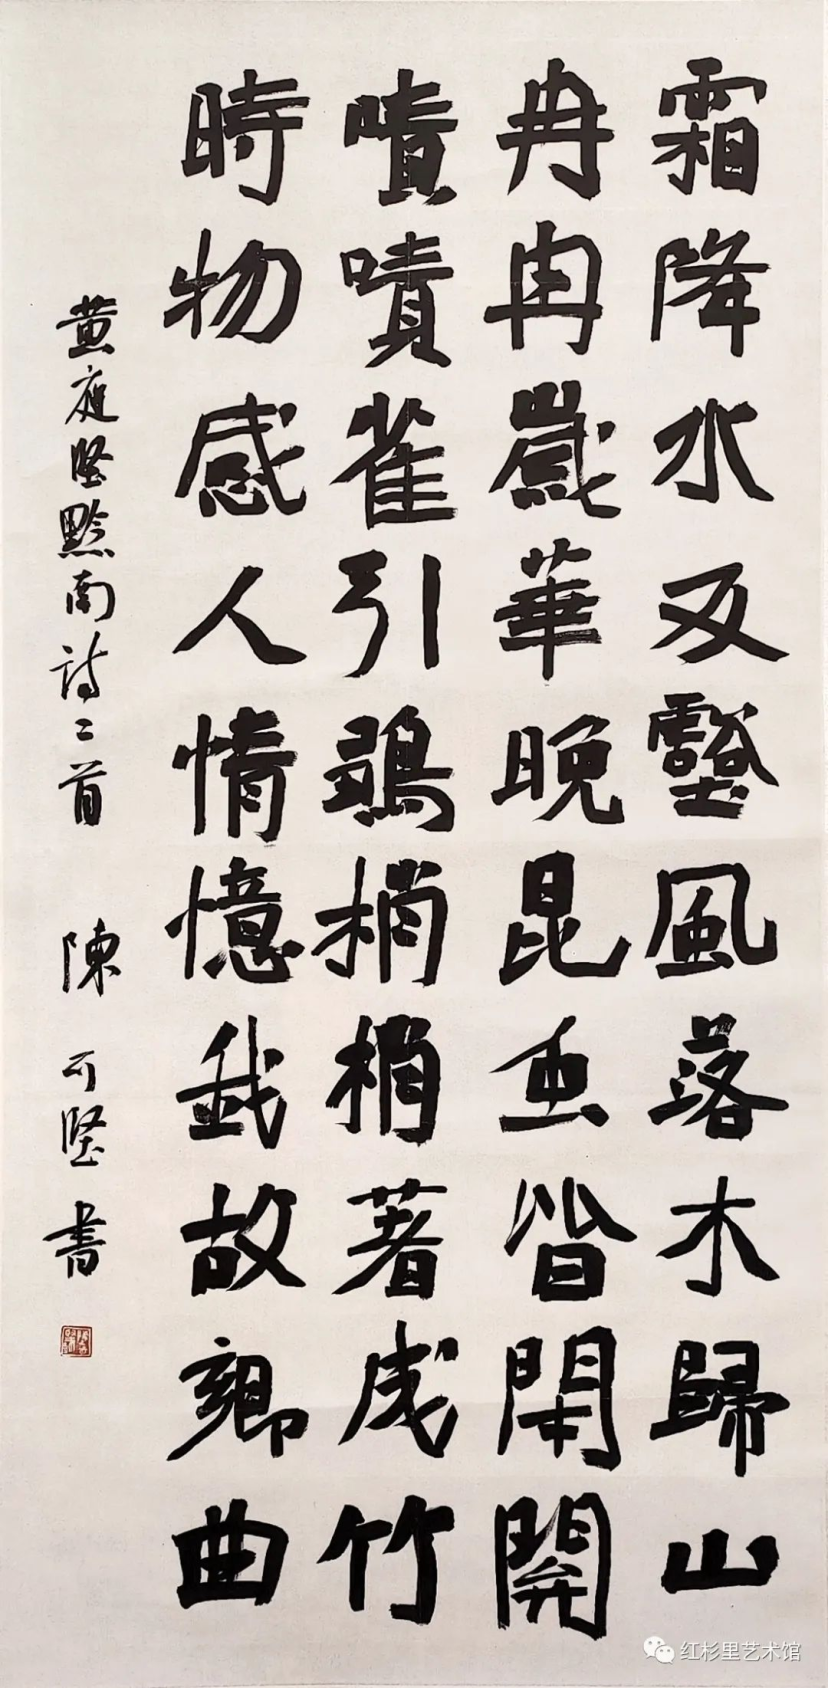 霜降水反壑風落木歸山
冉冉歲華晚昆虫皆閉關
嘖嘖雀引鶵梢梢筍成竹
時物感人情憶我故鄉曲
黄庭堅黔南詩二首 陳可堅書
红杉里艺术馆